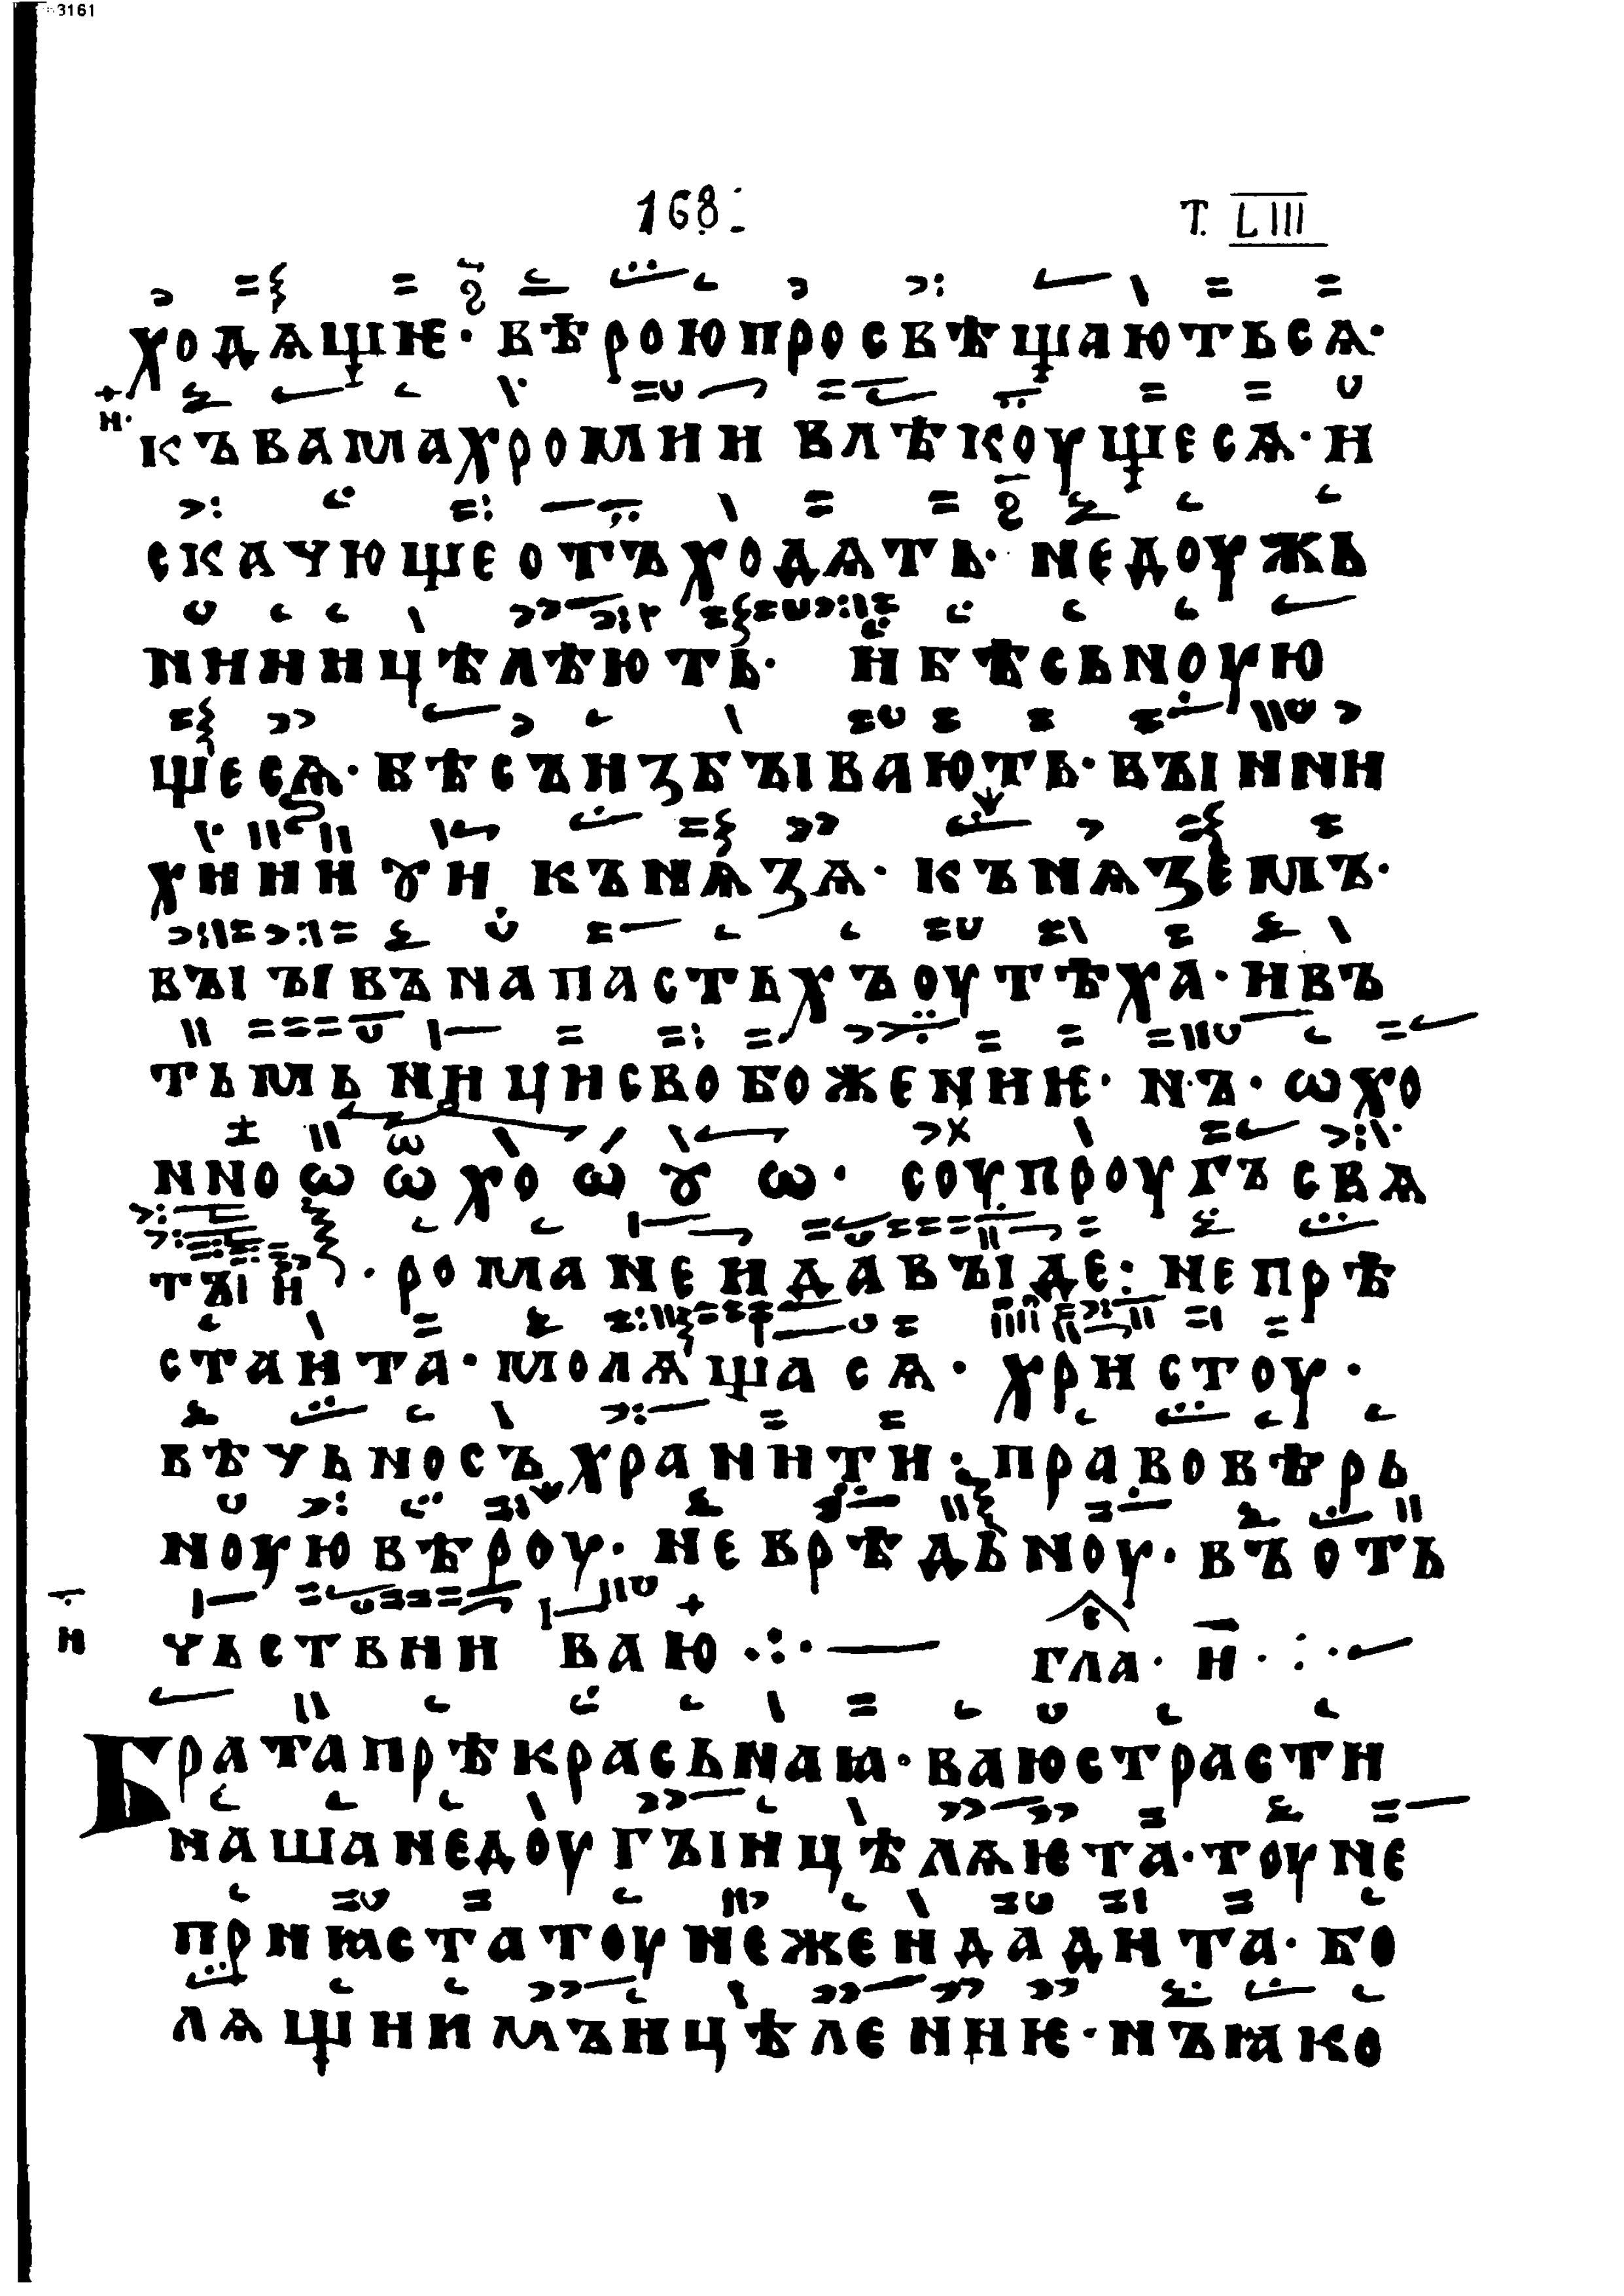 3161
168 T. LIII
ходѧщиѥ · вѣроюпросвѣщаютьсѧ ·
н ·
къвамахромии влѣкоущесѧ · и
скачющеотъходѧть · недоужь
нииицѣлѣють · и бѣсьноую
щесѧ · бѣсъизбываютъ · въі нни
хиии ꙋи кънѧзѧ · кънѧземъ ·
въі ъі въ напастьхъоутѣха · ивъ
тьмьницисвобожениѥ · нъ · ѡхо
нноѡ ѡ хо ѡ ꙋ ѡ · соупроугъ свѧ
тъіи · романе и давъіде : непрѣ
стаита · молѧща сѧ · христоу ·
вѣчьно съхранити · правовѣрь
ноую вѣроу · неврѣдьноу · въ оть
и
чьствии ваю гла · и ·
Братапрѣкрасьнаꙗ · ваюстрасти
нашанедоугъіицѣлѧѥта · тоуне
приꙗстатоунежеидадита · бо
лѧщиимъицѣлениѥ · нъꙗко